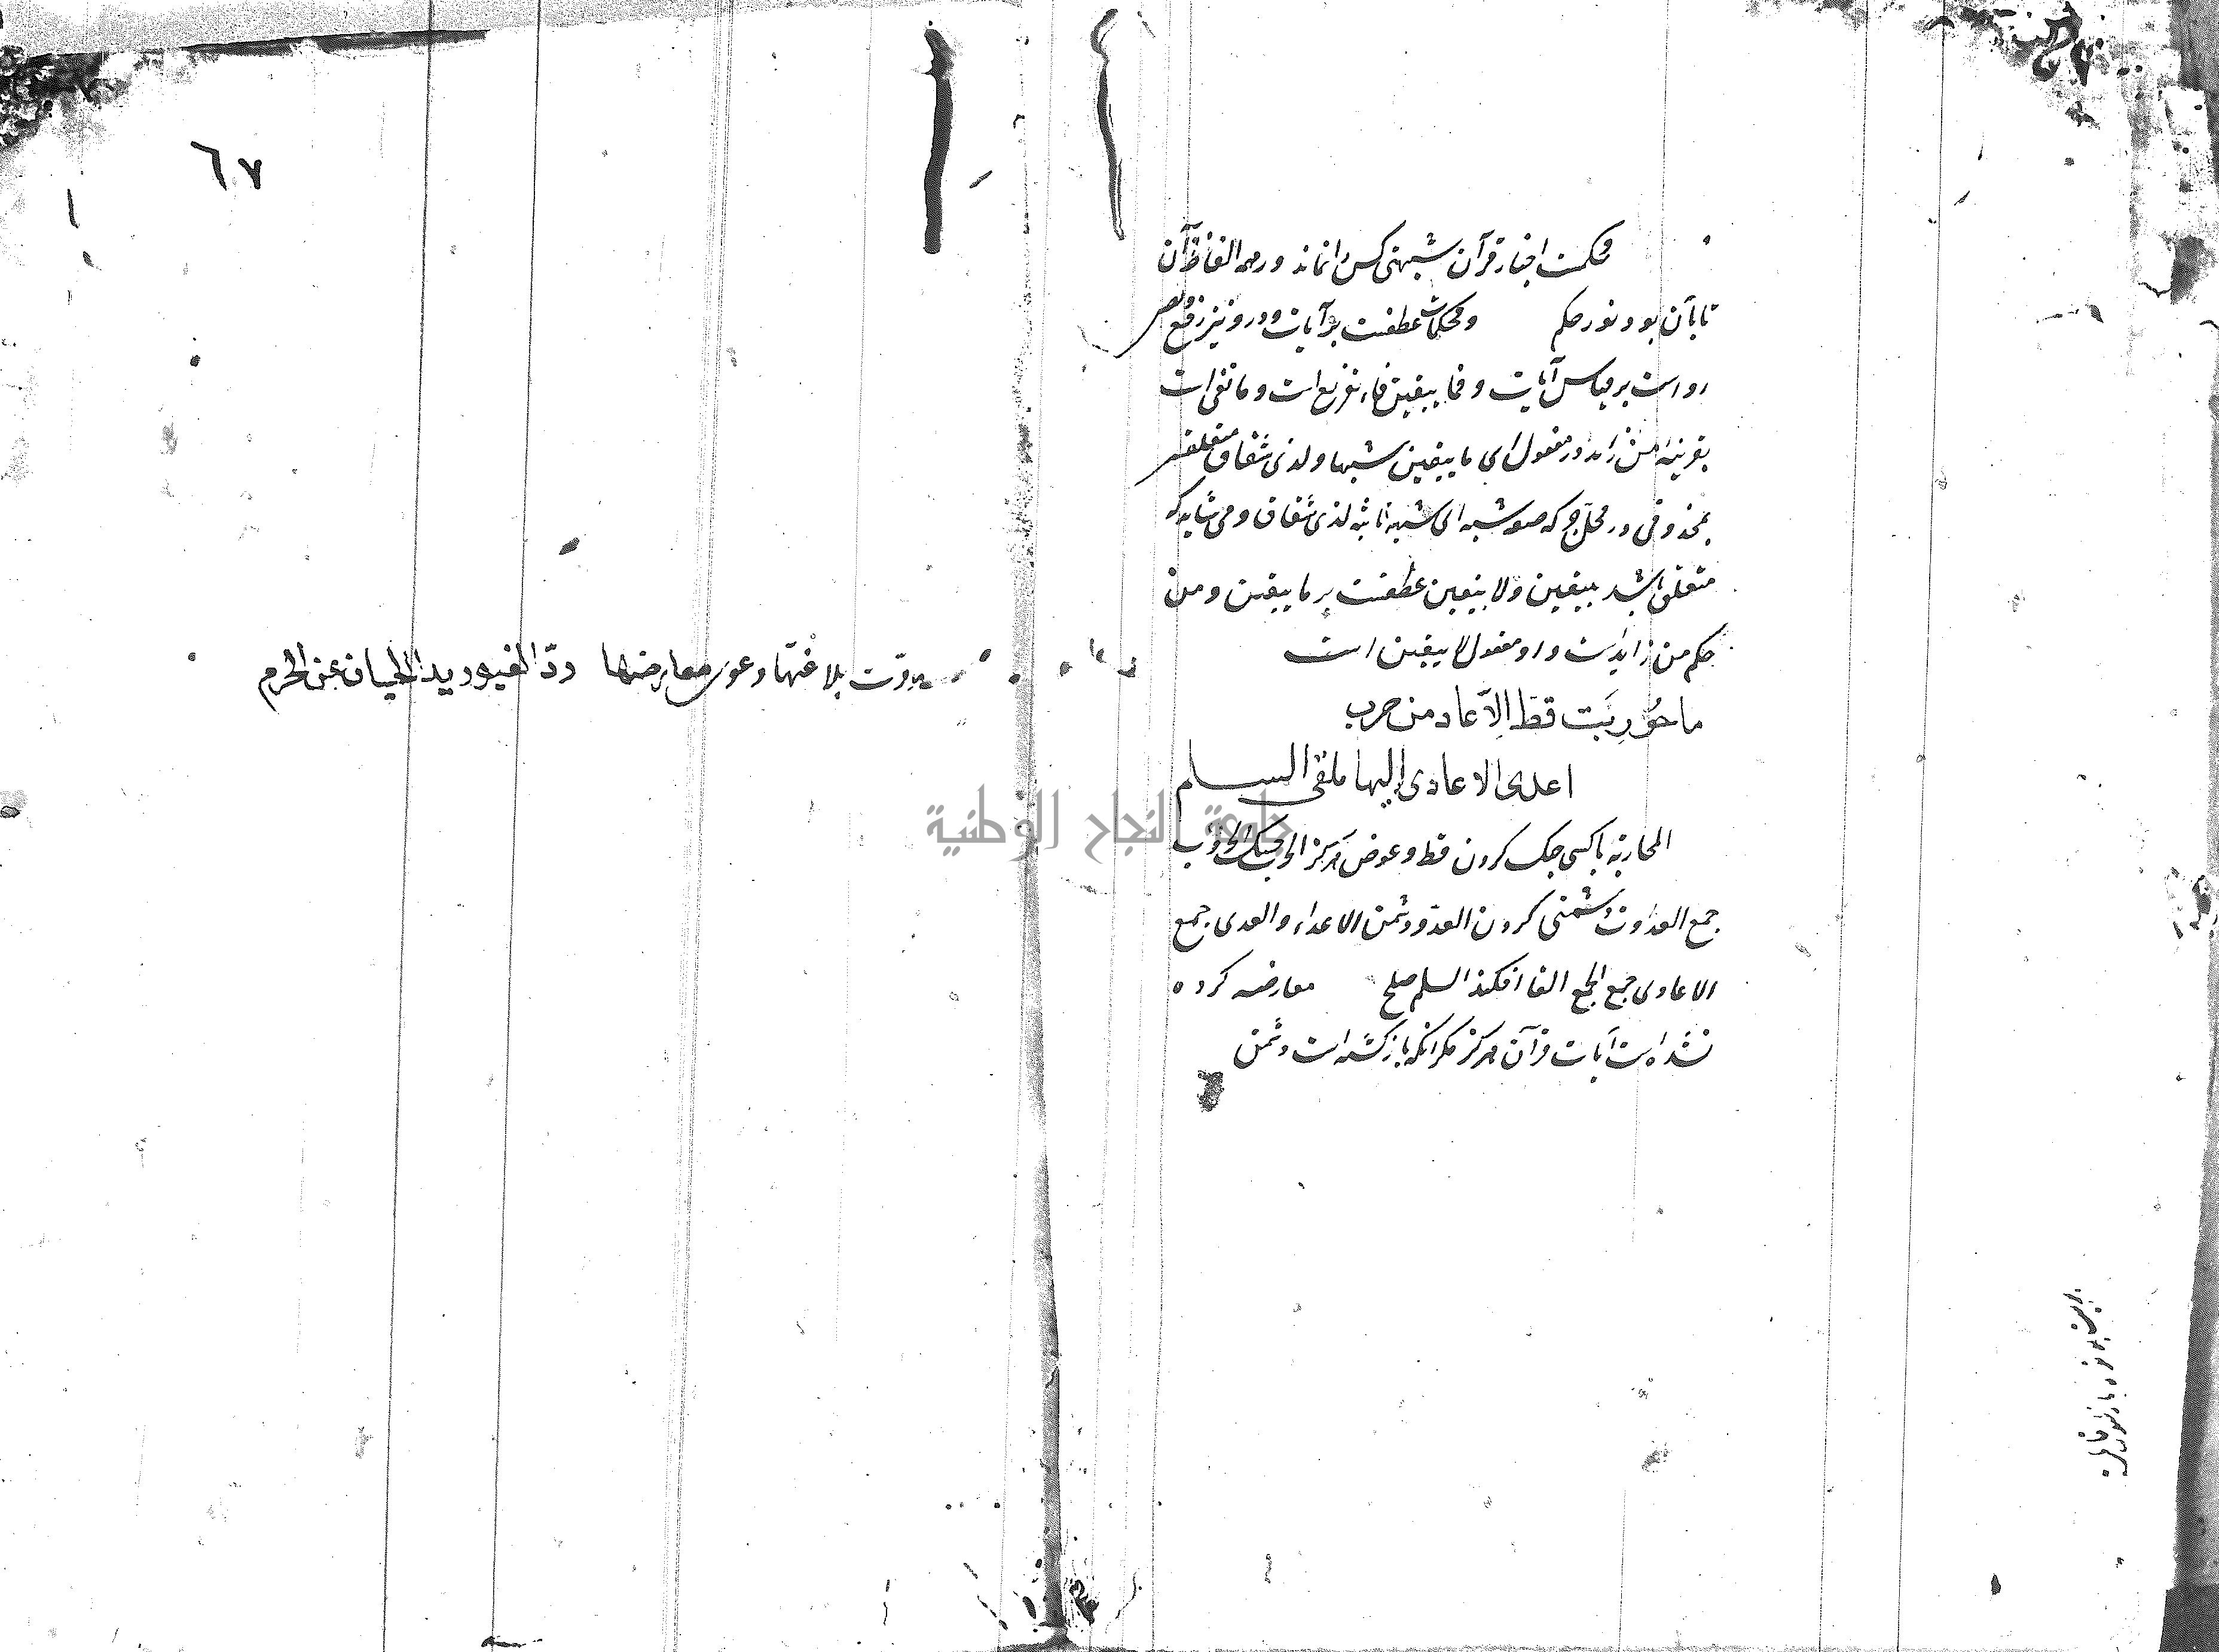 محکمت اخبار قرآن شبهتی کس را نماند در همه الفاظ قرآن
تابان بود نور حکم و محکمات عطفست بر آیات و درو نیز رفع و نصب
رواست بر قیاس آیات و فما یبقین فاء تفریع است و ما نفی است
بقرینه من زاید در مفعول ای ما یبقین شبها و لذی شقاق متعلقست
بمحذوفی در محل جر که صفة شبه ای شبه ثابتة لذی شقاق و می شاید که
متعلق باشد بیبقین و لا یبغین عطفست بر ما یبقین و من
حکم من زایدست و او مفعول لا یبغین است
ما حُورِبَت قطّ اِلّا عاد من حرب
اعدی الاعادی إلیها ملقی السلم
المحاربة با کسی جنک کردن قط و عوض هرکز الحرب جنک
جمع العداوت دشمنی کردن العدوّ دشمن الاعداء و العدی جمع
الاعادی جمع الجمع القا افکندن السلم صلح معارضه کرده
نشده است آیات قرآن هرکز مکر آنکه بازکشته است دشمن
ردّت بلاغتها دعوی معارضها ردّ الغیور ید الجانی عن الحرم
٦٧
جامعة النجاح الوطنية